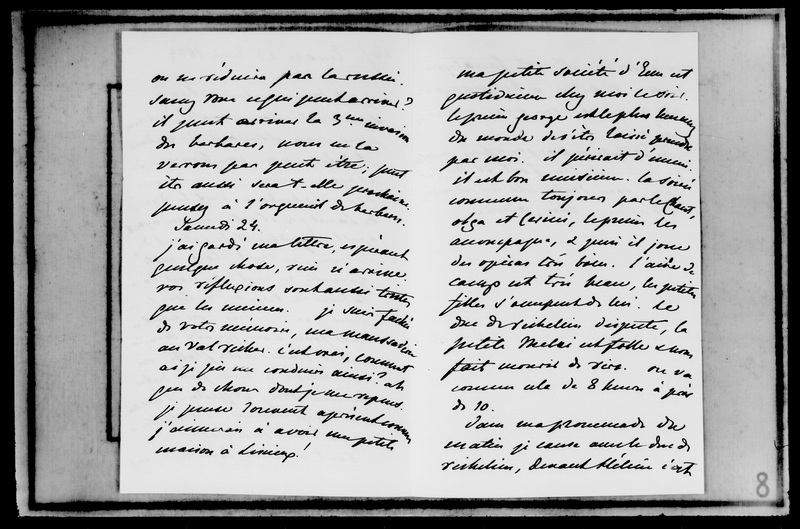 on se réduira par la
Savez vous ce qui peut arriver?
il peut arriver la 3me invasion
des barbares, nous ne la
verrons pas peut être, peut
être aussi sera t-elle prochaine.
pensez à l'orgueil de barbares.
Samedi 24.
j'ai gardé ma lettre, espérant
quelque chose, rien n'arrive
vos réflexions sont aussi tristes
que les miennes. je suis fachée
de votre mémoire, ma
au Val richer. c'est vrai, comment
ai-je pu me conduire ainsi? ah
que de choses dont je me repens.
je pense souvent à présent comme
j'aimerais à avoir une petite
maison à Lisieux!
ma petite société d'Ems est
quotidienne chez moi le soir.
le prince george est le plus heureux
du monde d'être laissé
par moi. il périrait d'ennui.
il est bon musicien. la soirée
commence toujours par le chant,
olga et le prince les
accompagne, & puis il joue
des opéras très bien. l'aide de
camp est très beau, les petites
filles s'occupent de lui. Le
duc de richelieu dispute, la
petite est folle & nous
fait mourir de rire. on va
comme cela de 8 heures à près
de 10.
Dans ma promenade du
matin je cause avec le duc de
richelieu, devant Hélène c'est
8